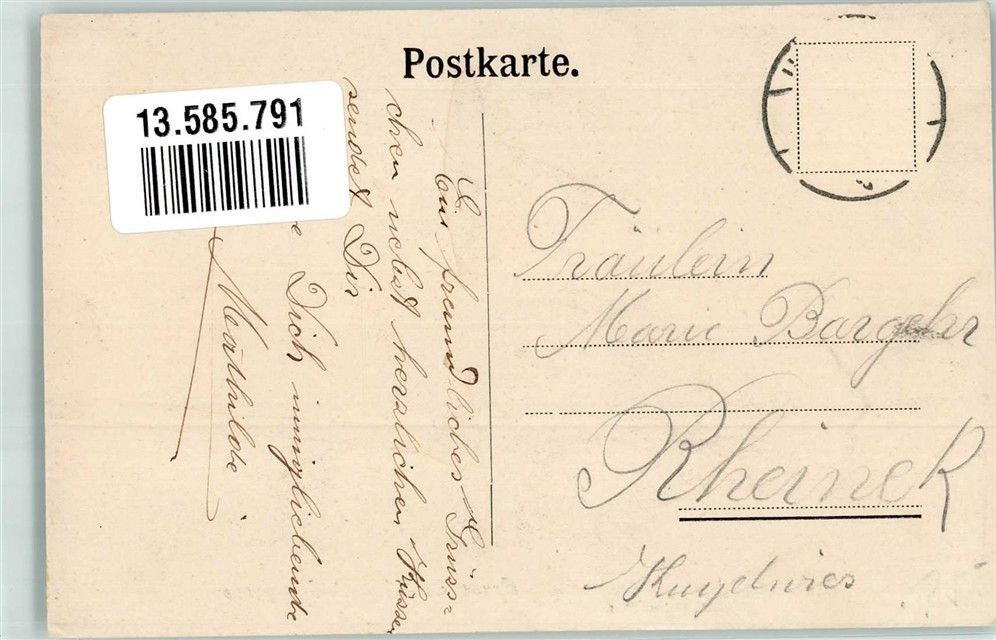 Postkarte.
13.585.791
L.
Ein freundliches Grüss-
chen nebst herzlichen Küssen
sendet Dir
Dich inniglieibende
Mathilde
Fräulein
Marie Bargehr
Rheinek